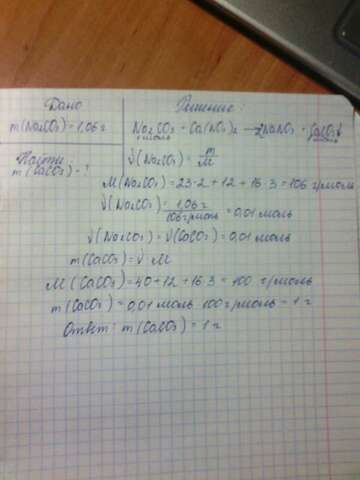 Дано
m(Na2CO3) = 1,06 г
Найти:
m(CaCO3) - ?
Решение:
Na2CO3 + Ca(NO3)2 → 2NaNO3 + CaCO3↓
1 моль
ν(Na2CO3) = m/M
M(Na2CO3) = 23·2 + 12 + 16·3 = 106 г/моль
ν(Na2CO3) = 1,06г/106г/моль = 0,01 моль
ν(Na2CO3) = ν(CaCO3) = 0,01 моль
m(CaCO3) = ν · M
M(CaCO3) = 40 + 12 + 16·3 = 100 г/моль
m(CaCO3) = 0,01 моль · 100 г/моль = 1 г
Ответ: m(CaCO3) = 1 г